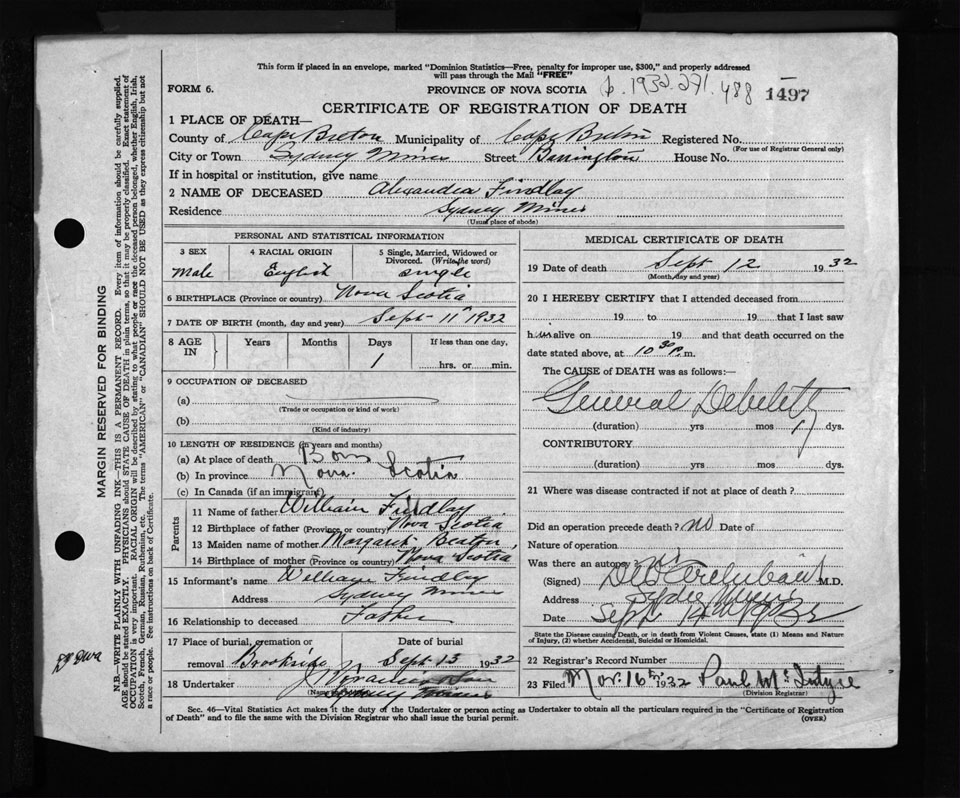 This form if placed in an envelope, marked "Dominion Statistics—Free, penalty for improper use, $300," and properly addressed
will pass through the Mail "FREE"
FORM 6.
PROVINCE OF NOVA SCOTIA
1932.271.488
1497
CERTIFICATE OF REGISTRATION OF DEATH
1 PLACE OF DEATH—
County of Cape Breton Municipality of Cape Breton Registered No.
(For use of Registrar General only)
City or Town Sydney Mines Street Barrington House No.
If in hospital or institution, give name
2 NAME OF DECEASED Alexandra Findlay
Residence Sydney Mines
(Usual place of abode)
PERSONAL AND STATISTICAL INFORMATION
3 SEX
Male
4 RACIAL ORIGIN
English
5 Single, Married, Widowed or
Divorced. (Write the word)
single
6 BIRTHPLACE (Province or country) Nova Scotia
7 DATE OF BIRTH (month, day and year) Sept 11 1932
8 AGE IN
Years Months Days If less than one day,
1 hrs. or min.
9 OCCUPATION OF DECEASED
(a)
(Trade or occupation or kind of work)
(b)
(Kind of industry)
10 LENGTH OF RESIDENCE (in years and months)
(a) At place of death Born
(b) In province Nova Scotia
(c) In Canada (if an immigrant)
Parents
11 Name of father William Findlay
12 Birthplace of father (Province or country) Nova Scotia
13 Maiden name of mother Margaret Beaton
14 Birthplace of mother (Province or country) Nova Scotia
15 Informant's name William Findlay
Address Sydney Mines
16 Relationship to deceased Father
17 Place of burial, cremation or Date of burial
removal Brookside Sept 13 1932
18 Undertaker
MEDICAL CERTIFICATE OF DEATH
19 Date of death Sept 12 1932
(Month, day and year)
20 I HEREBY CERTIFY that I attended deceased from
19 to 19 that I last saw
him alive on 19 and that death occurred on the
date stated above, at 10 30 P.m.
The CAUSE of DEATH was as follows:—
General Debelety
(duration) yrs mos 1 dys.
CONTRIBUTORY
(duration) yrs mos dys.
21 Where was disease contracted if not at place of death?
Did an operation precede death? no Date of
Nature of operation
Was there an autopsy
(Signed) Archibald M.D.
Address Sydney Mines
Date Sept
State the Disease causing Death, or in death from Violent Causes, state (1) Means and Nature
of Injury, (2) whether Accidental, Suicidal or Homicidal.
22 Registrar's Record Number
23 Filed Nov. 16 1932 Paul McIntyre
(Division Registrar)
Sec. 46—Vital Statistics Act makes it the duty of the Undertaker or person acting as Undertaker to obtain all the particulars required in the "Certificate of Registration
of Death" and to file the same with the Division Registrar who shall issue the burial permit.
(OVER)
MARGIN RESERVED FOR BINDING
N.B.—WRITE PLAINLY WITH UNFADING INK—THIS IS A PERMANENT RECORD. Every item of information should be carefully supplied.
AGE should be stated EXACTLY. PHYSICIANS should STATE CAUSE OF DEATH in plain terms, so that it may be properly classified. Exact statement of
OCCUPATION is very important. RACIAL ORIGIN will be described by stating to what people or race the deceased person belonged, whether English, Irish,
Scotch, French, German, Russian, Ruthenian, etc. The terms "AMERICAN" or "CANADIAN" SHOULD NOT BE USED as they express citizenship but not
a race or people. See instructions on back of Certificate.